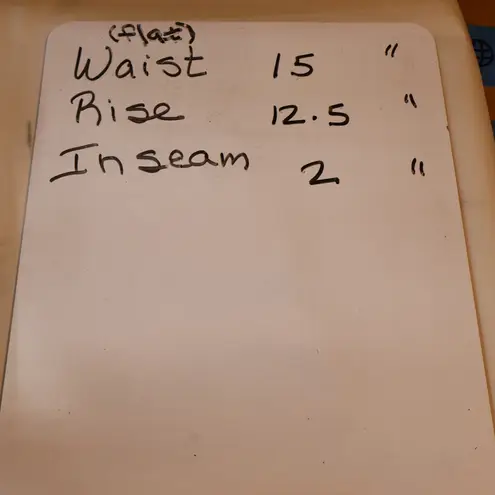 (flat)
Waist 15 "
Rise 12.5 "
Inseam 2 "